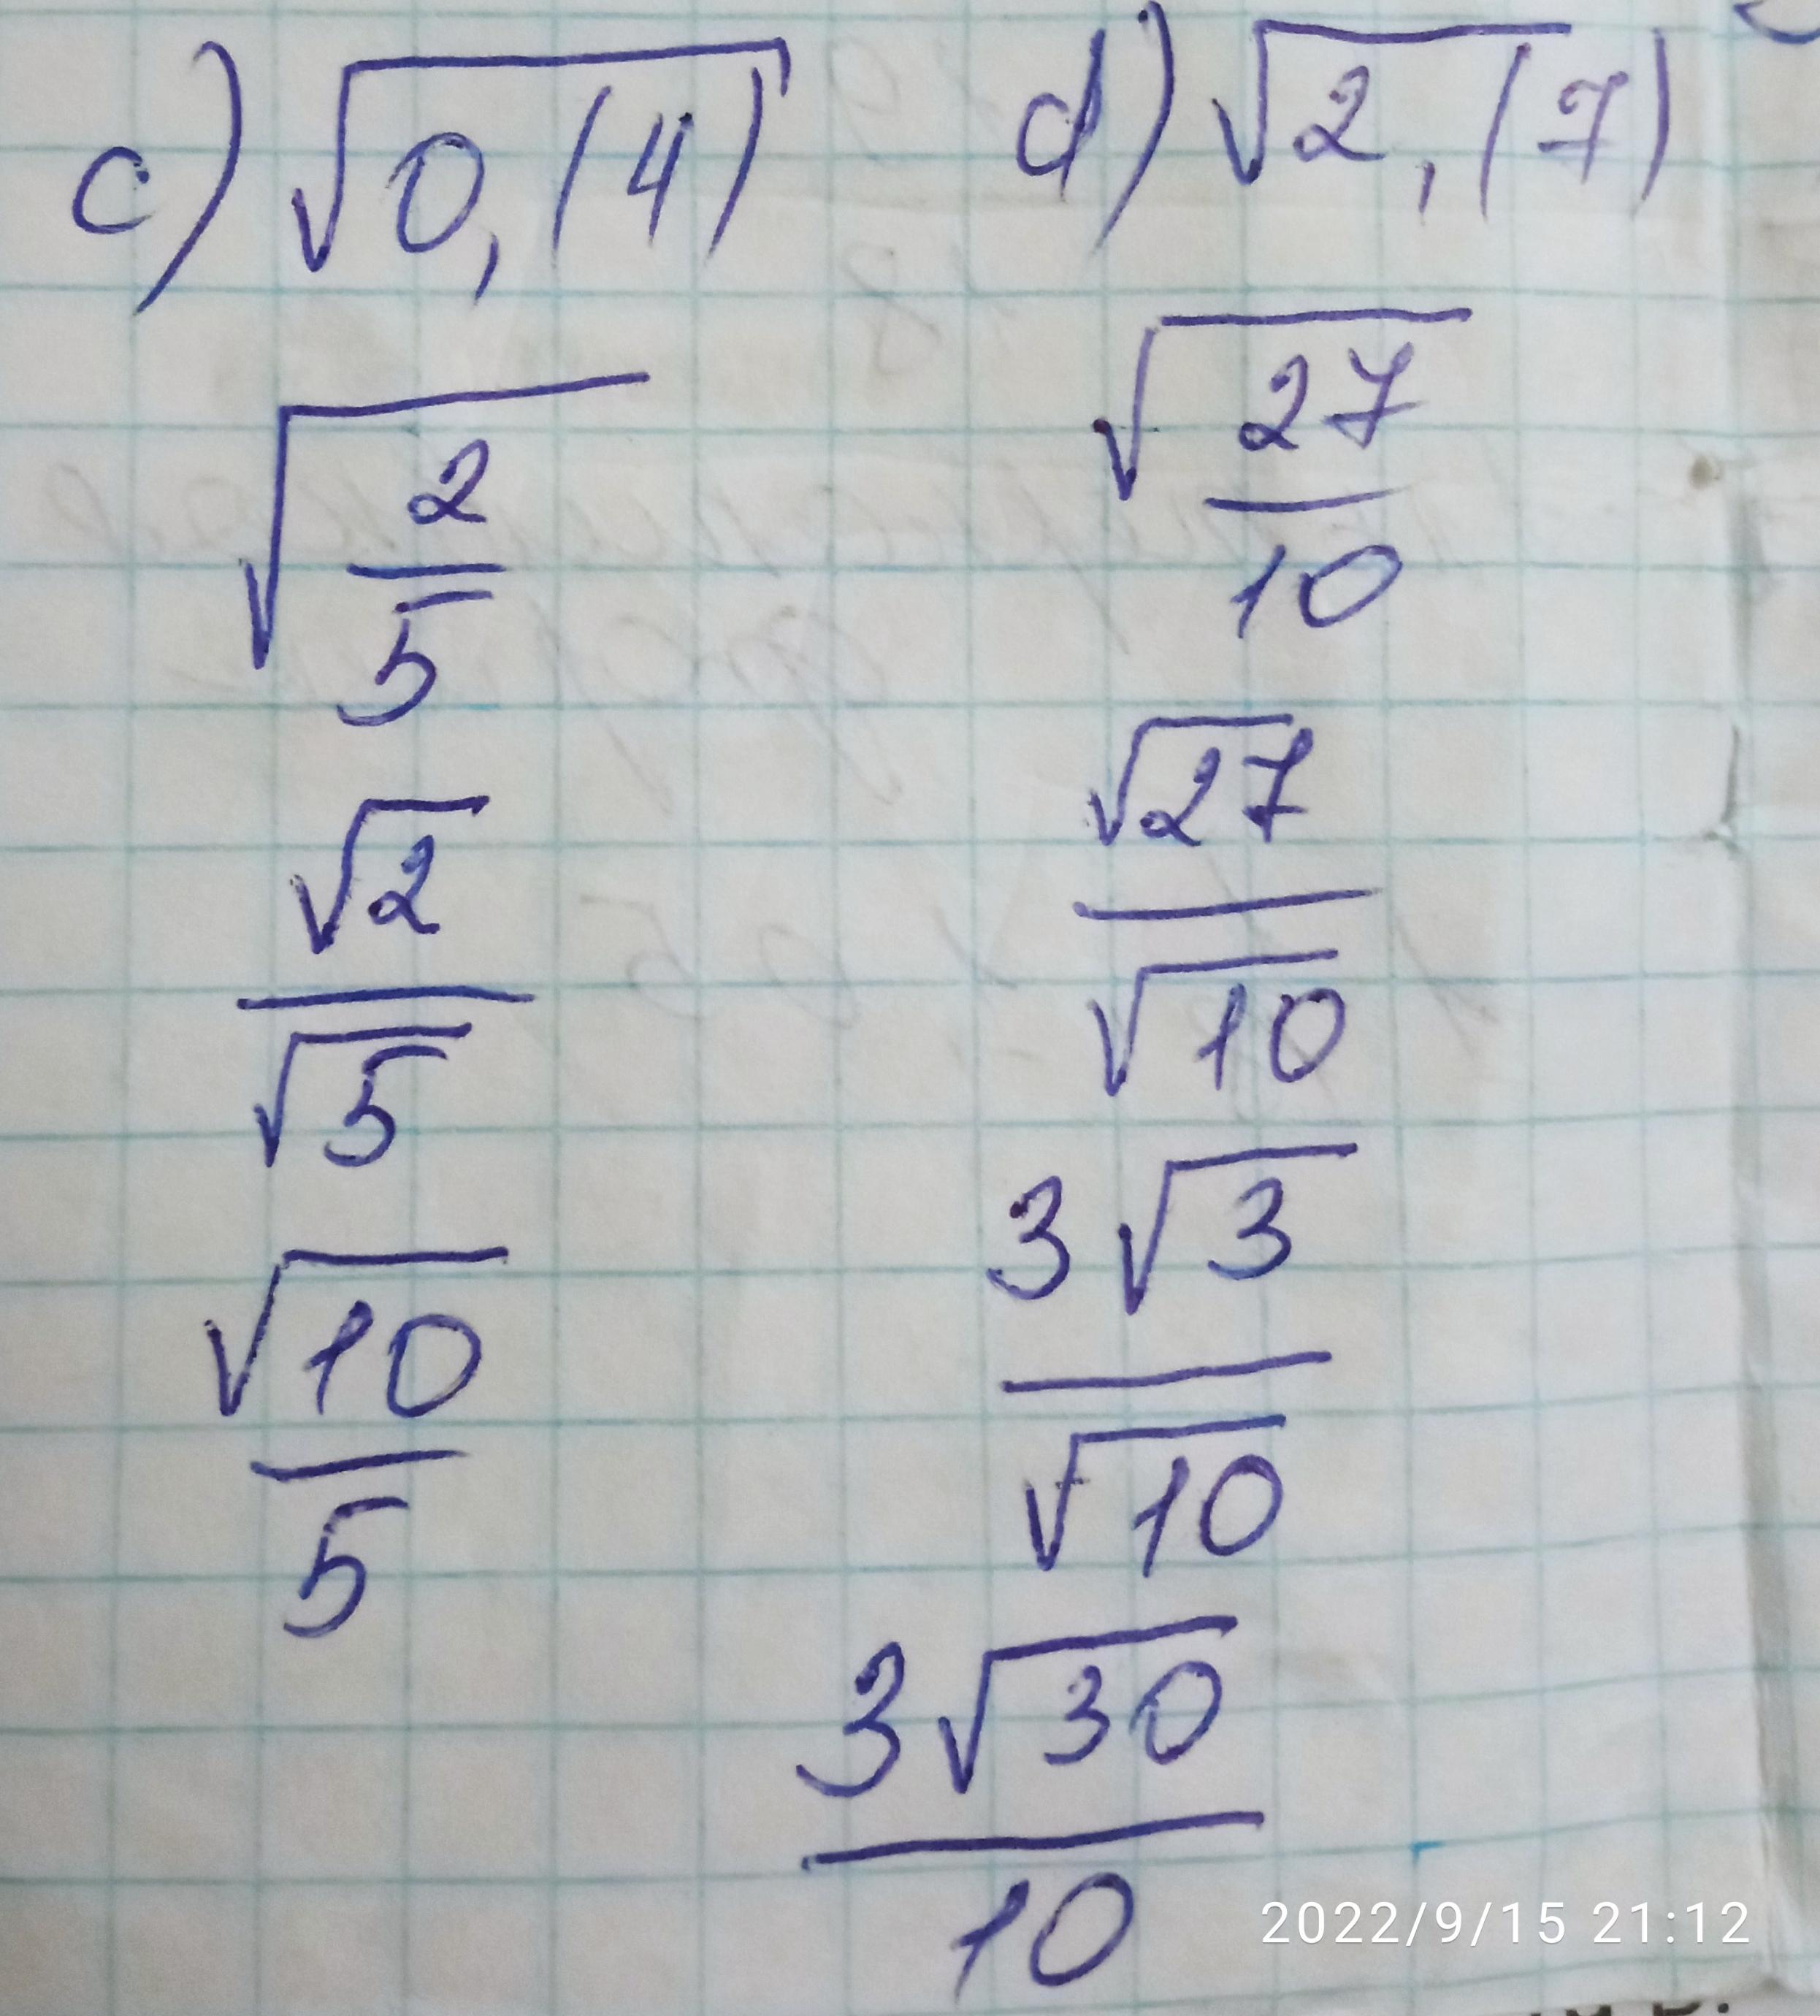 c) √0,(4)
√2/5
√2/√5
√10/5
d) √2,(7)
√27/10
√27/√10
3√3/√10
3√30/10
2022/9/15 21:12